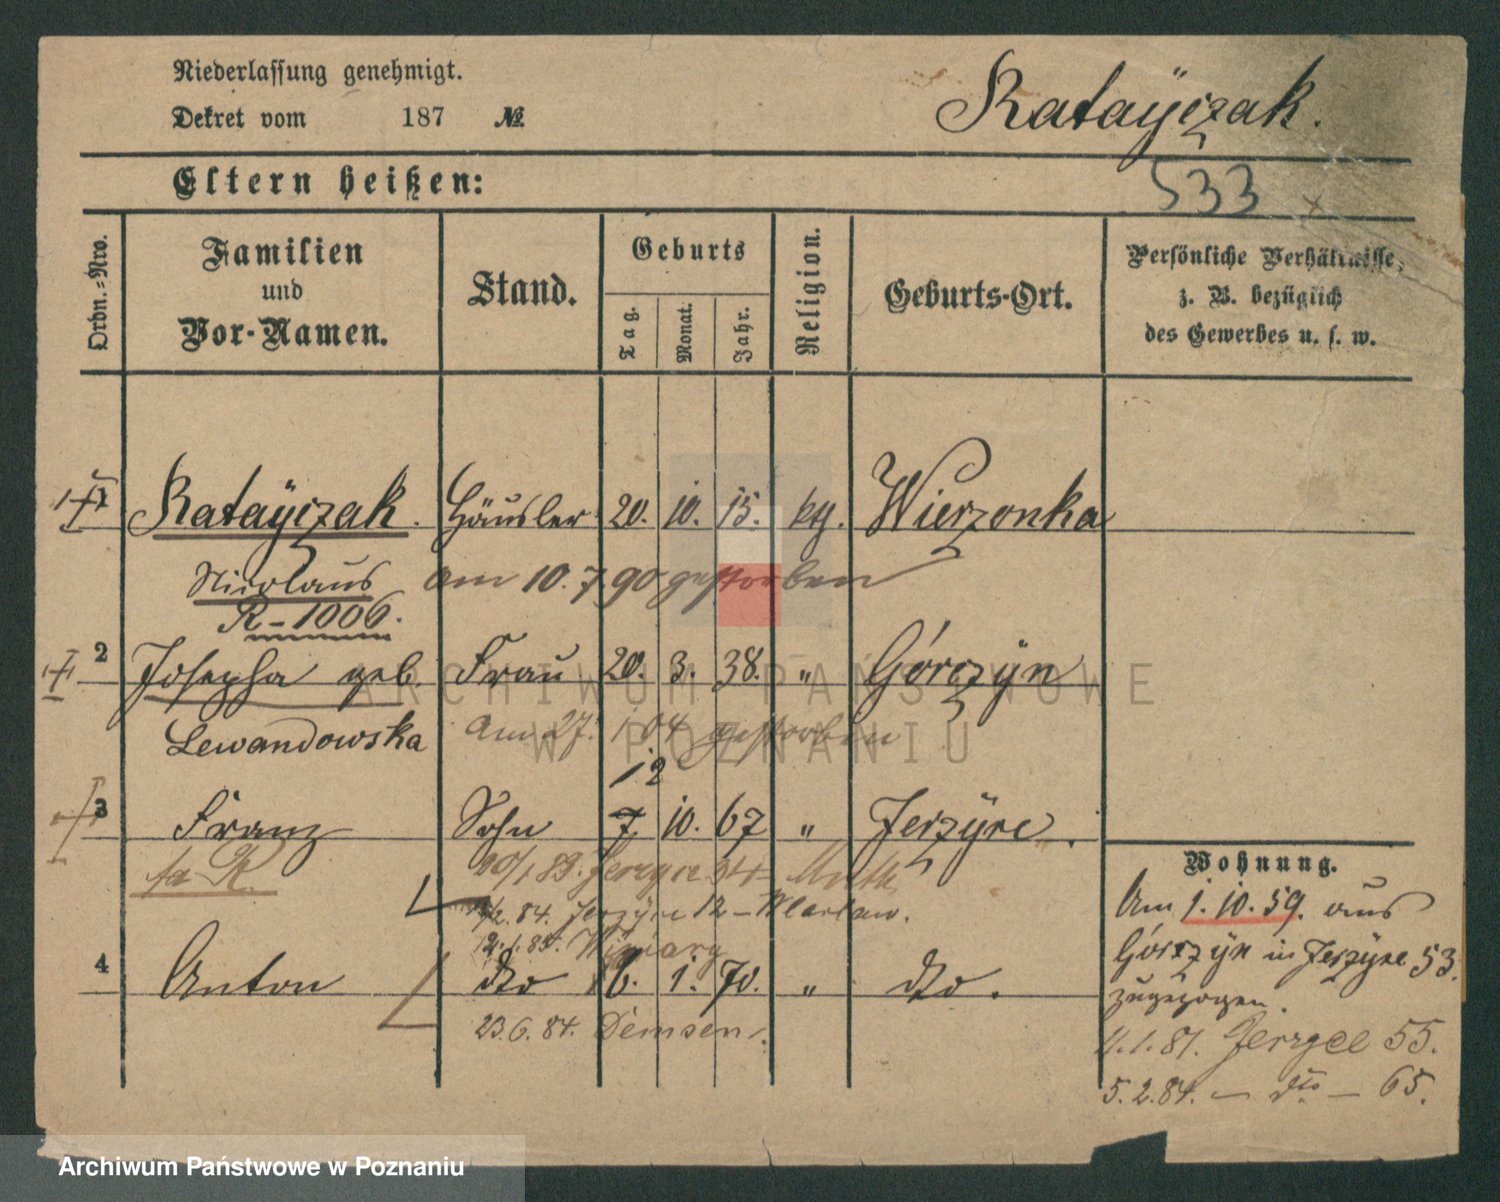 Niederlassung genehmigt.
Dekret vom 187 №
Ratayczak.
533
Eltern heißen:
Ordn.-Nro.
Familien
und
Vor-Namen.
Stand.
Geburts
Tag.
Monat.
Jahr.
Religion.
Geburts-Ort.
Persönliche Verhältnisse,
z. B. bezüglich
des Gewerbes u. s. w.
1 Ratayczak. Häusler 20. 10. 15. kth. Wierzonka
Nicolaus am 10. 7. 90 gestorben
R-1006.
2 Josepha geb. Frau 20. 3. 38. " Górczyn
Lewandowska am 27. 1 04 gestorben
12
3 Franz Sohn 7 10. 67 " Jerzyce.
20/1 83. Jerzyce 34
2. 84. Jerzyce 12 –
4 Anton dto 6. 1. 70. " dto.
23.6.84. Demsen
Wohnung.
Am 1. 10. 59. aus
Górczyn in Jerzyce 53.
zugezogen.
4.1.81. 55.
5.2.84. – dto – 65.
ARCHIWUM PAŃSTWOWE
W POZNANIU
Archiwum Państwowe w Poznaniu